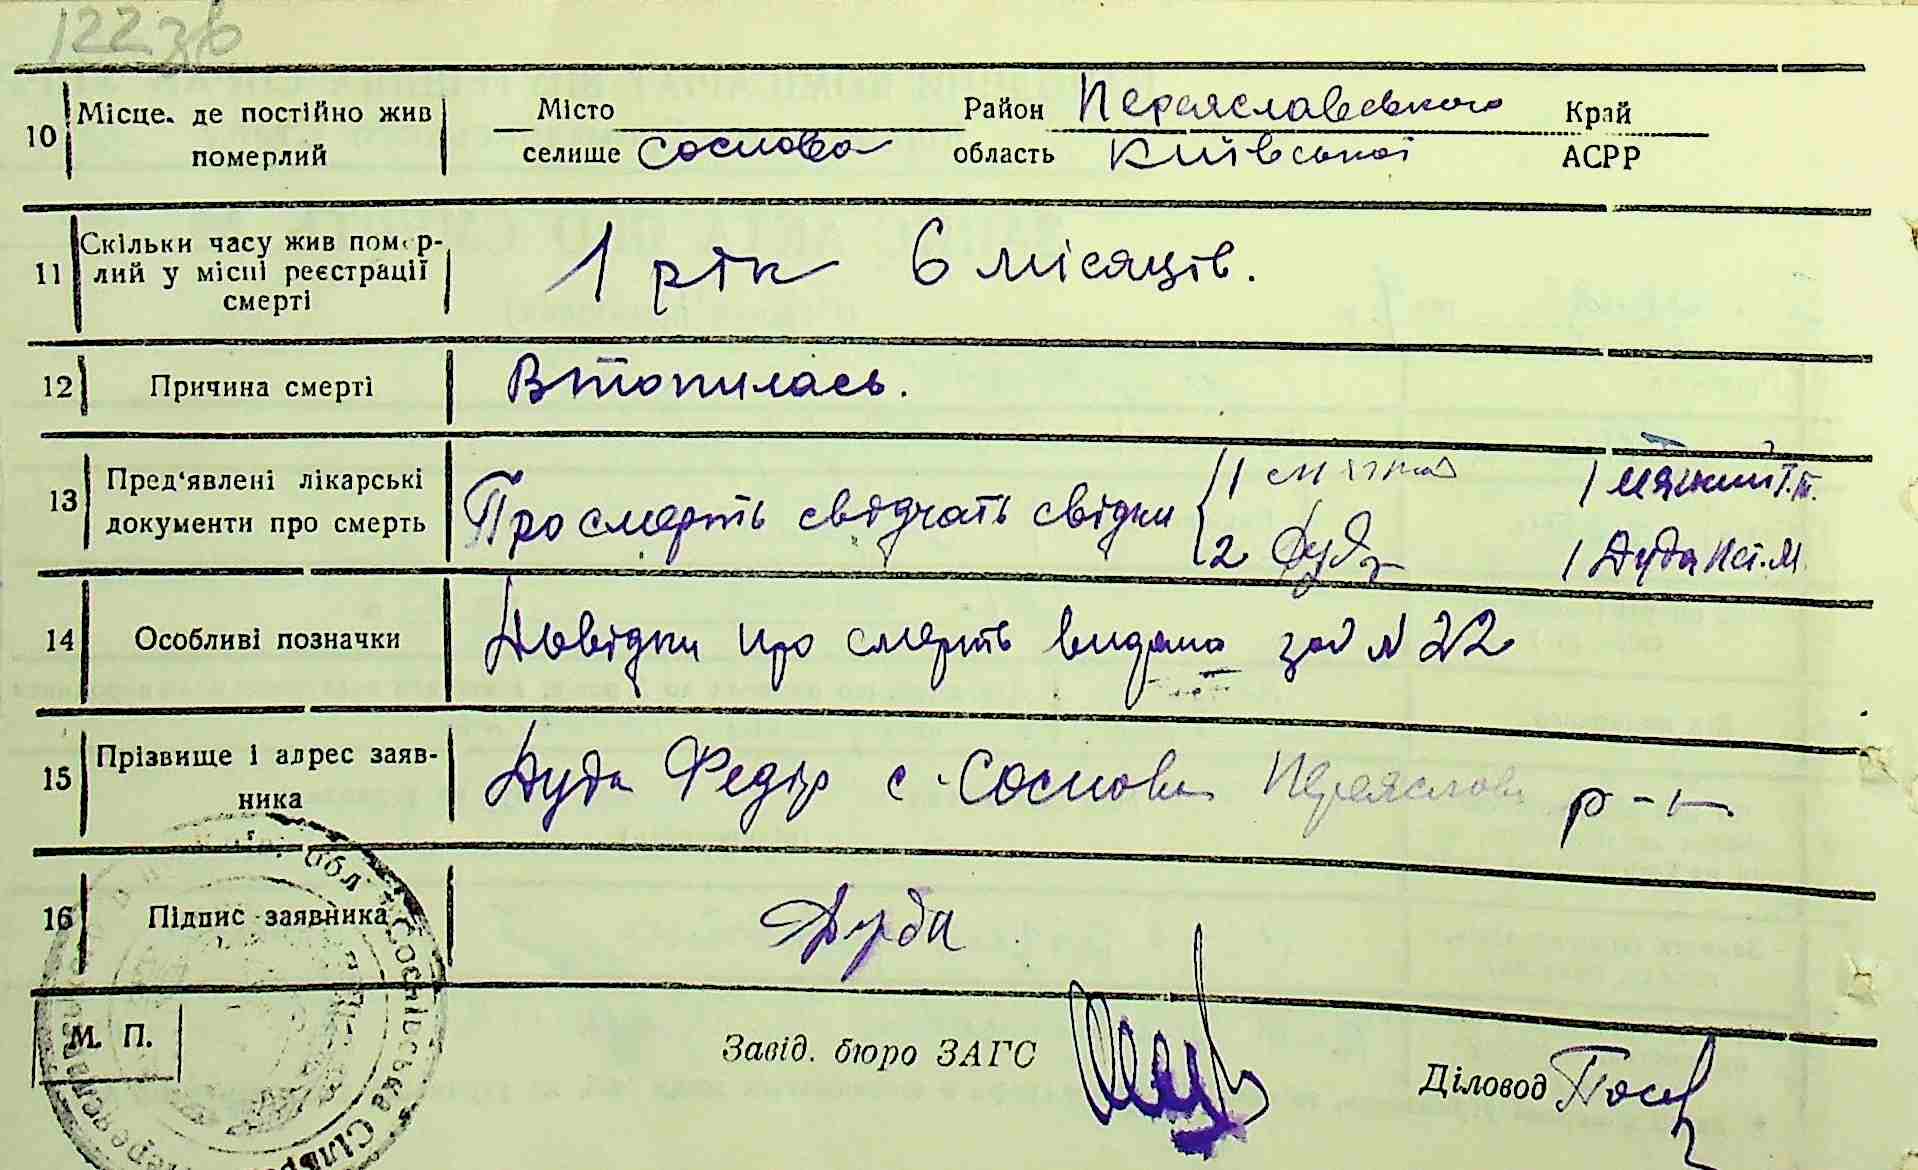 122 зв
10 Місце, де постійно жив померлий Місто Район Переяславського Край
селище Соснова область Київської АСРР
11 Скільки часу жив помер-
лий у місці реєстрації
смерті
1 рік 6 місяців.
12 Причина смерті Втопилась.
13 Пред'явлені лікарські
документи про смерть
Про смерть свідчать свідки 1 1 М'який Т.Т.
2 Дуда 1 Дуда
14 Особливі позначки Довідки про смерть видано за № 22
15 Прізвище і адрес заяв-
ника
Дуда Федір с. Соснова Переяслов р-н
16 Підпис заявника Дуда
М. П. Завід. бюро ЗАГС Діловод